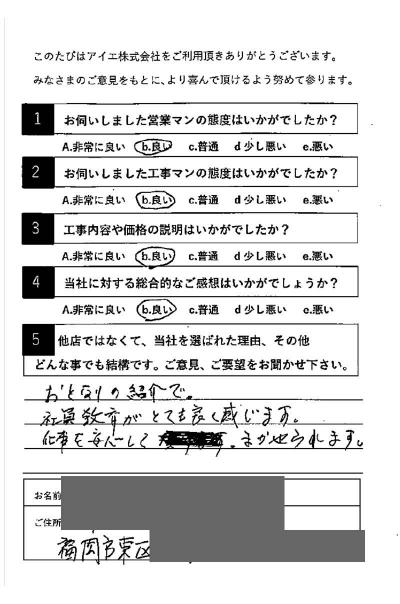 このたびはアイエ株式会社をご利用頂きありがとうございます。
みなさまのご意見をもとに、より喜んで頂けるよう努めて参ります。
1 お伺いしました営業マンの態度はいかがでしたか？
A.非常に良い b.良い c.普通 d少し悪い e.悪い
2 お伺いしました工事マンの態度はいかがでしたか？
A.非常に良い b.良い c.普通 d少し悪い e.悪い
3 工事内容や価格の説明はいかがでしたか？
A.非常に良い b.良い c.普通 d少し悪い e.悪い
4 当社に対する総合的なご感想はいかがでしょうか？
A.非常に良い b.良い c.普通 d少し悪い e.悪い
5 他店ではなくて、当社を選ばれた理由、その他
どんな事でも結構です。ご意見、ご要望をお聞かせ下さい。
おとなりの紹介で。
社員教育がとても良く感じます。
仕事を安心して まかせられます。
お名前
ご住所
福岡市東区